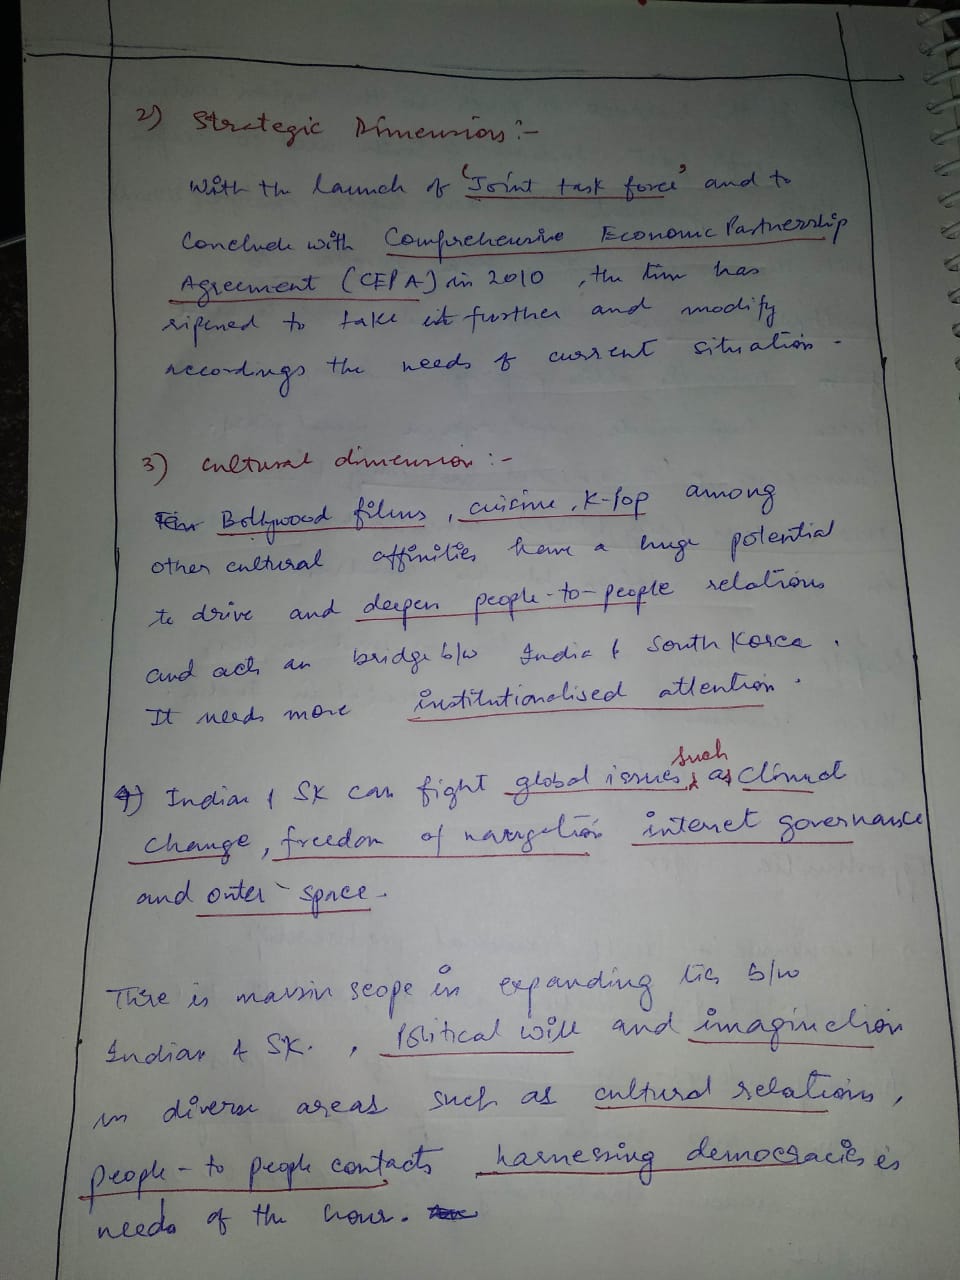 2) Strategic Dimensions :-
With the launch of 'Joint task force' and to
Conclude with Comprehensive Economic Partnership
Agreement (CEPA) in 2010 , the time has
ripened to take it further and modify
accordings the needs of current situation -
3) Cultural dimension :-
Bollywood films , cuisine , K-Pop among
other cultural affinities have a huge potential
to drive and deepen people-to-people relations
and acts as bridge b/w India & South Korea .
It needs more institutionalised attention .
4) Indian & SK can fight global issues, such as Climat
change, freedom of navigation internet governance
and outer space -
There is massiv scope in expanding ties b/w
Indian & SK. , Political will and imagination
in diverse areas such as cultural relations ,
people - to people contacts harnessing democracies is
needs of the hour .